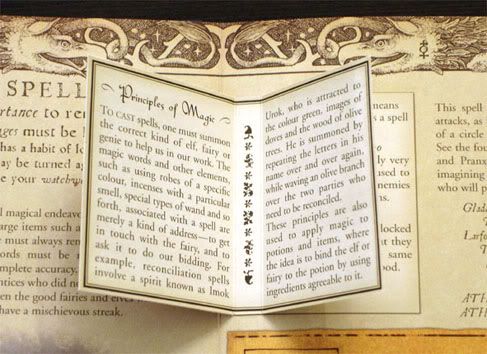 Principles of Magic
TO CAST spells, one must summon
the correct kind of elf, fairy or
genie to help us in our work. The
magic words and other elements,
such as using robes of a specific
colour, incenses with a particular
smell, special types of wand and so
forth, associated with a spell are
merely a kind of address—to get
in touch with the fairy, and to
ask it to do our bidding. For
example, reconciliation spells
involve a spirit known as Imok
Urok, who is attracted to
the colour green, images of
doves and the wood of olive
trees. He is summoned by
repeating the letters in his
name over and over again,
while waving an olive branch
over the two parties who
need to be reconciled.
These principles are also
used to apply magic to
potions and items, where
the idea is to bind the elf or
fairy to the potion by using
ingredients agreeable to it.
SPELL
to re
must be
has a habit of
may be turned
your watchw
magical endeavo
large items such a
must always rem
words must be
complete accuracy.
ntices who did no
en the good fairies and elves
have a mischievous streak.
means
very
used to
enemies
locked
at they
same
This spell
attacks, as
of a circle
See the fou
and Pranx
imagining
who will p
Glada